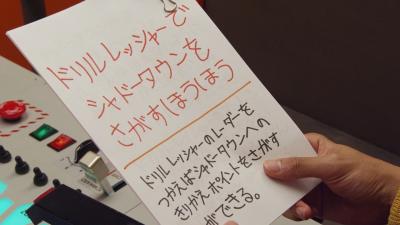 ドリルレッシャーで
シャドータウンを
さがすほうほう
ドリルレッシャーのレーダーを
つかえばシャドータウンへの
きりかえポイントをさがす
ができる。